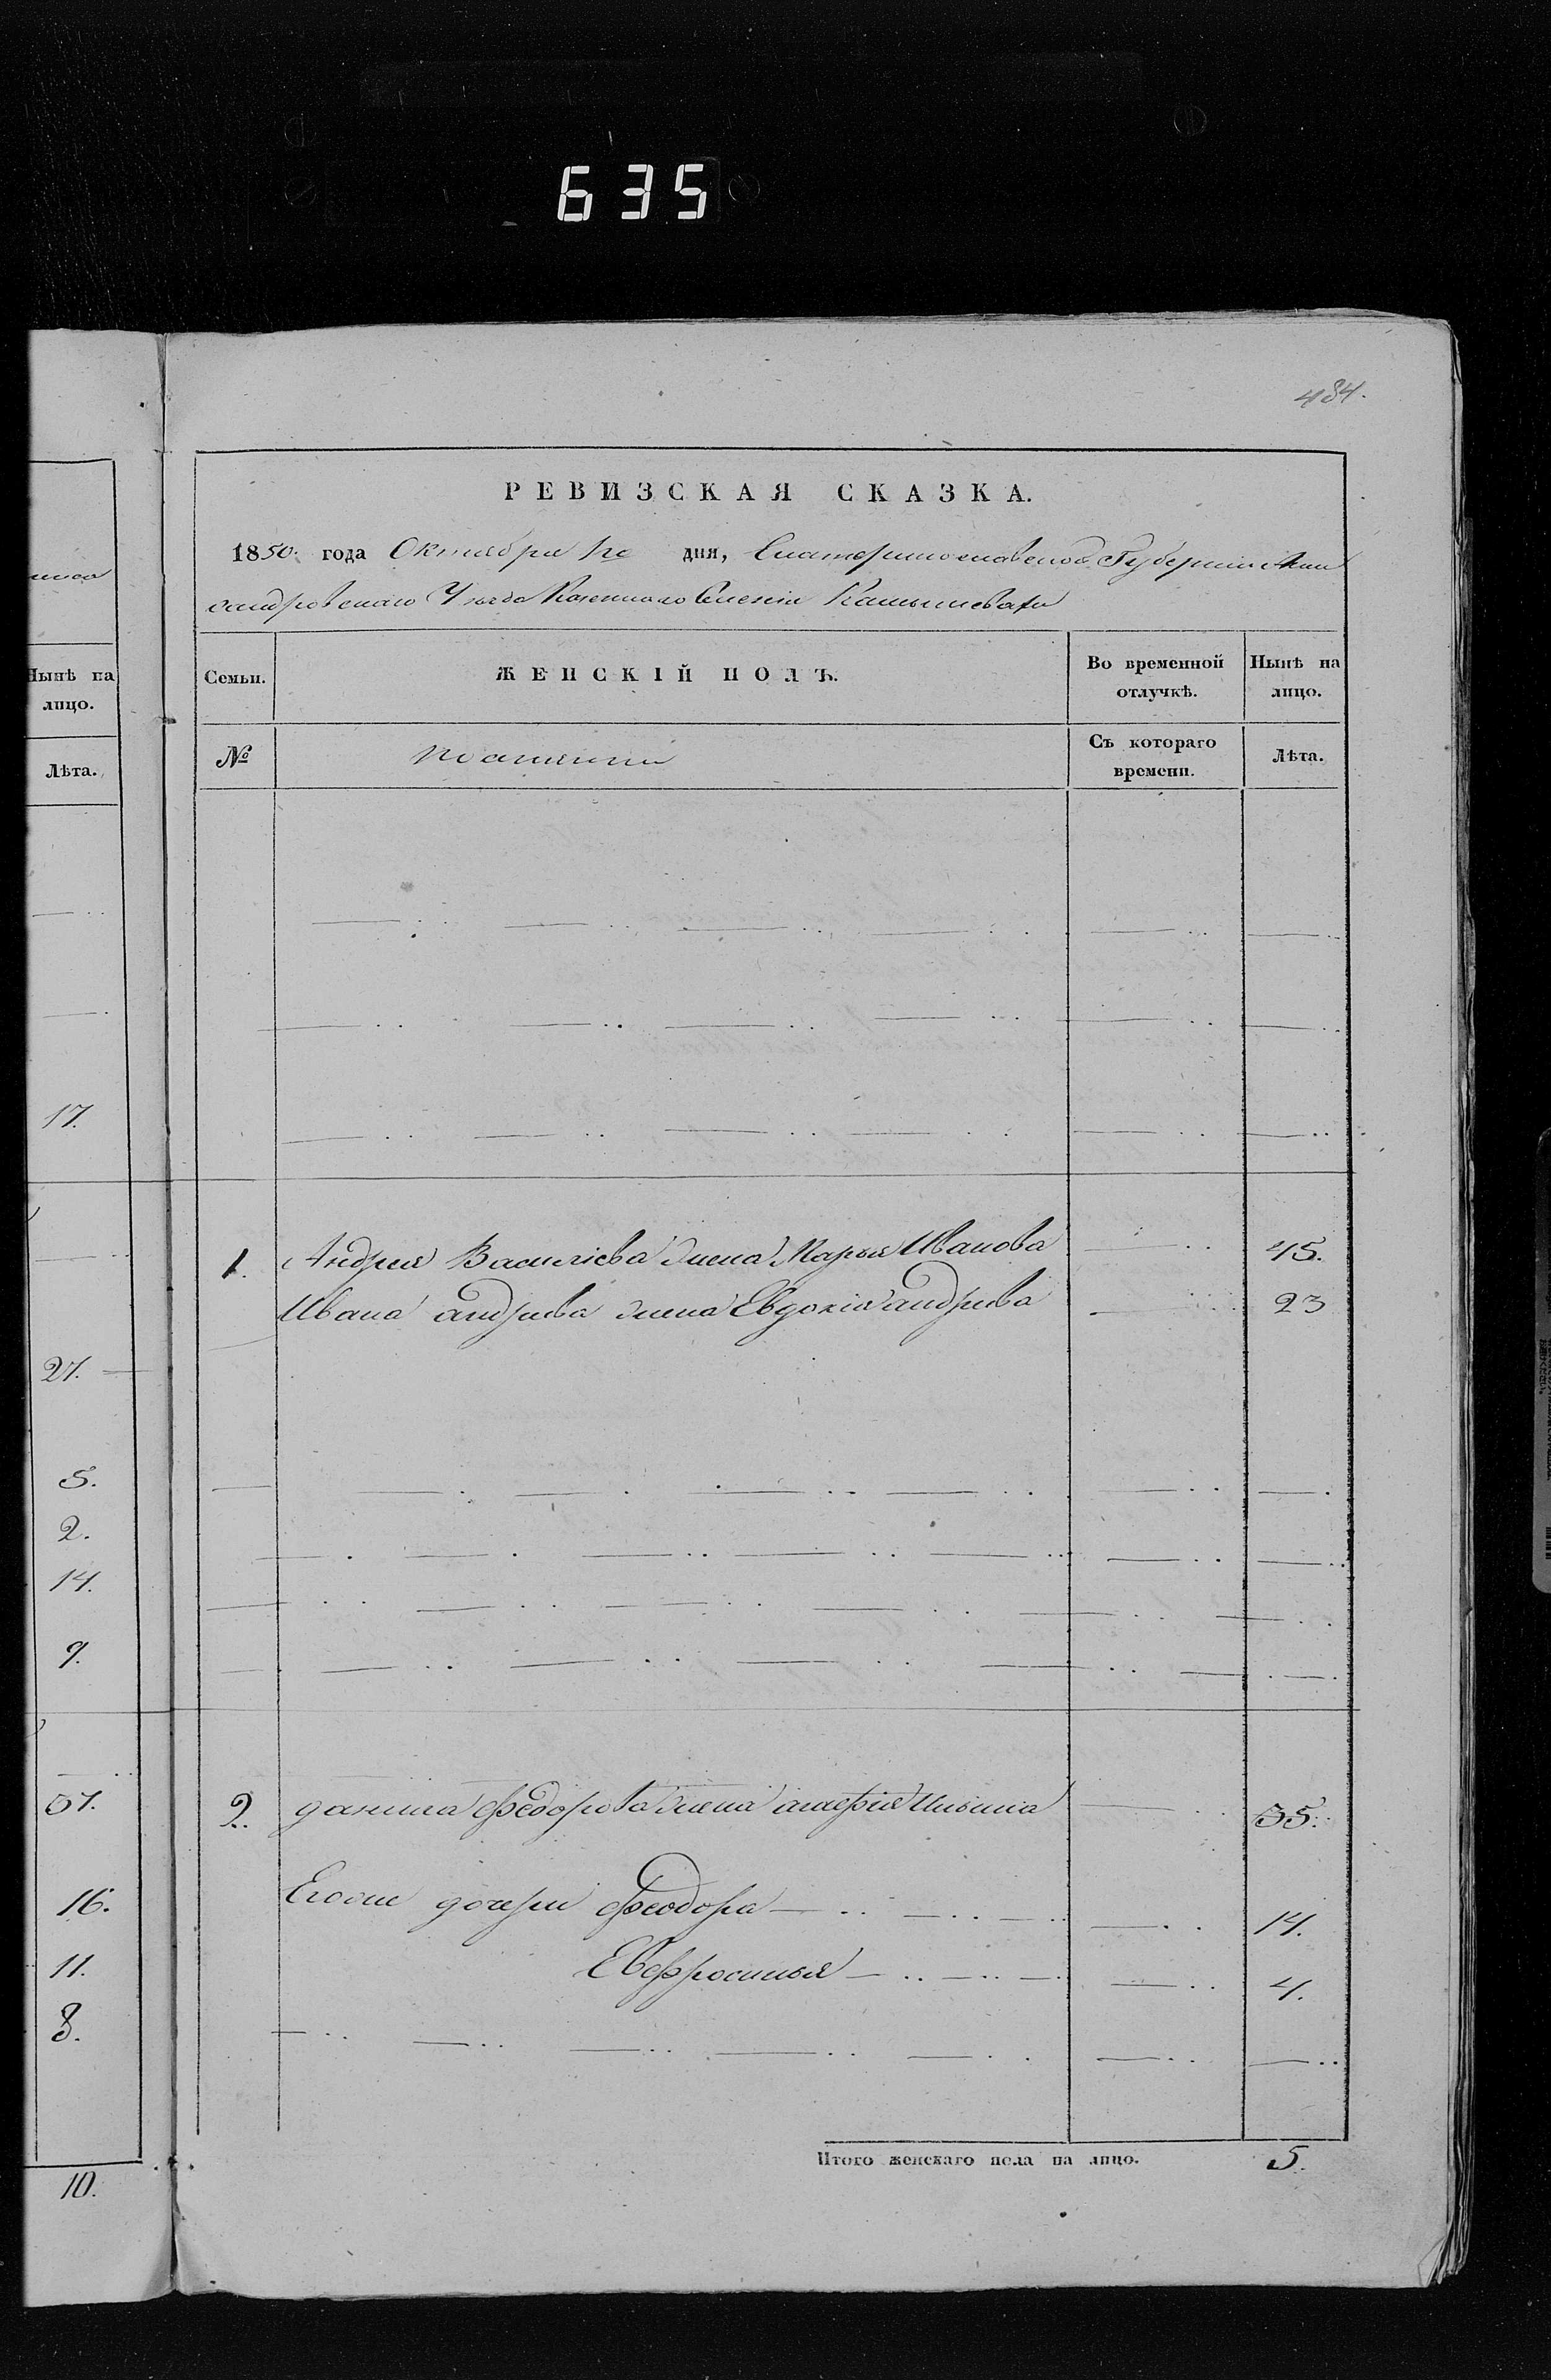 635
484.
РЕВИЗСКАЯ СКАЗКА.
1850. года Октября дня, Екатеринославской Губернии Алек
сандровскаго Уезда Казеннаго Селенія Камышеватхи
Нынѣ на
лицо.
Лѣта.
17.
27.
5.
2.
14.
9.
57.
16.
11.
8.
10.
Семьи.
ЖЕНСКІЙ ПОЛЪ.
Во временной
отлучкѣ.
Нынѣ на
лицо.
№
Съ котораго
времени.
Лѣта.
1. Андрея Василіева жена Марья Иванова 45.
Ивана андреева жена Евдокія андреева 23
2. данила Федорова жена агафія Ильина 35.
Егоже дочери Феодора 14.
Евфросинья 4.
Итого женскаго пола на лицо. 5.